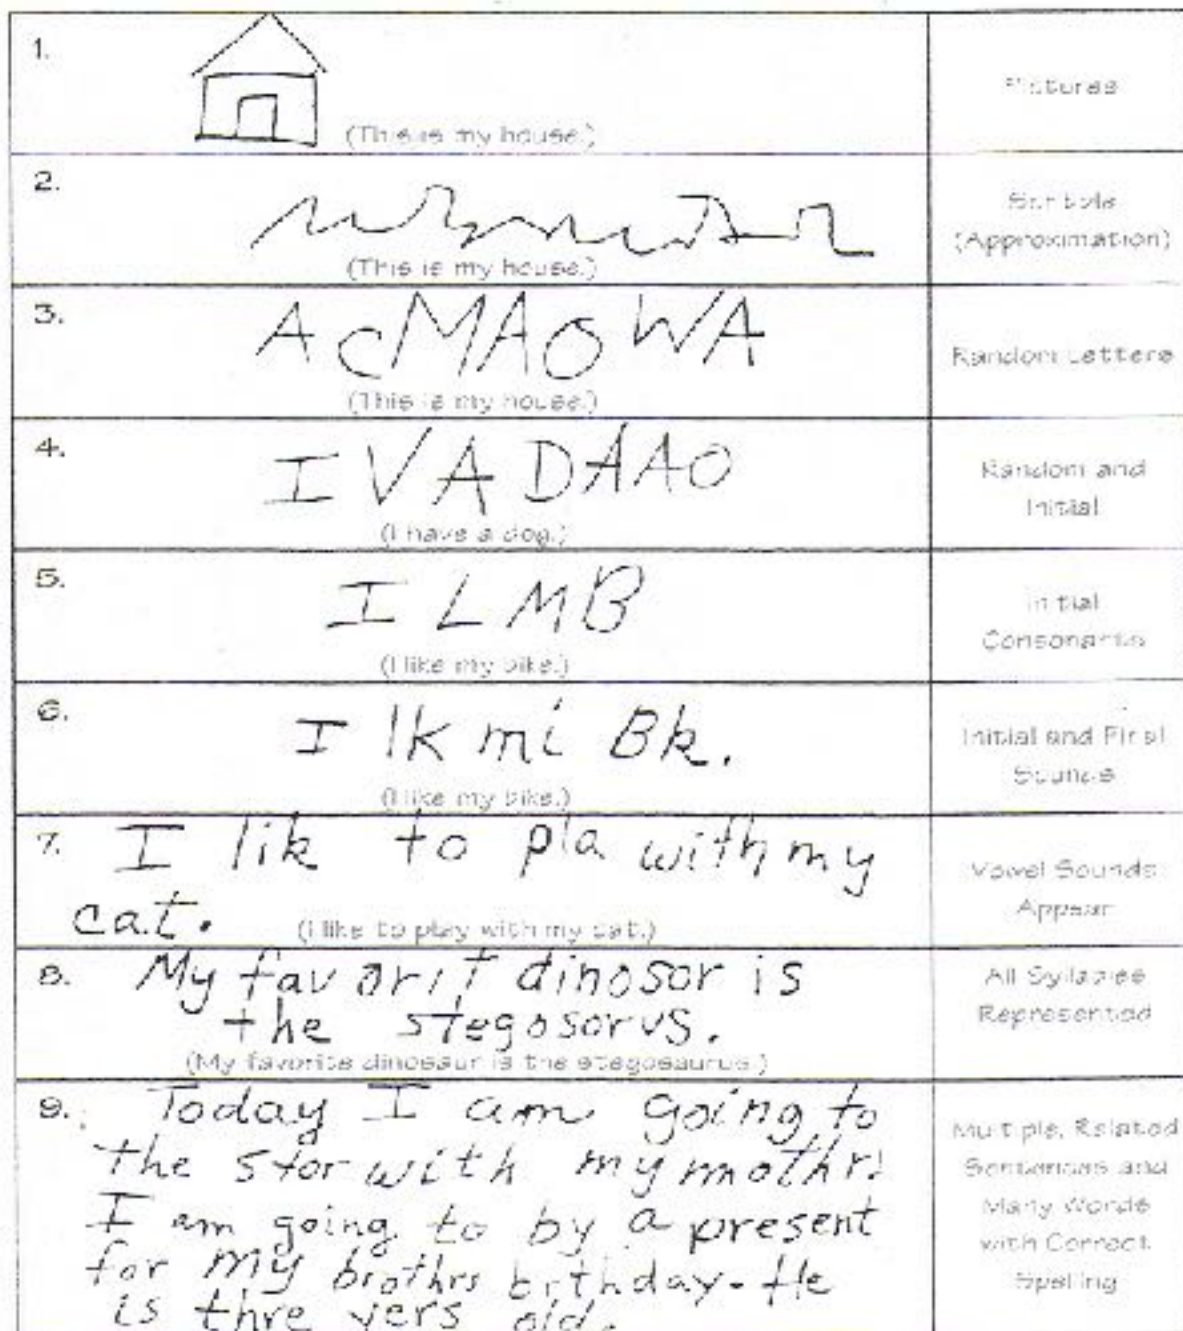 1.
(This is my house.)
Pictures
2.
(This is my house.)
Scribble
(Approximation)
3.
AcMAOWA
(This is my house.)
Random Letters
4.
I V A D A A O
(I have a dog.)
Random and
Initial
5.
I L M B
(I like my bike.)
Initial
Consonants
6.
I lk mi Bk.
(I like my bike.)
Initial and Final
Sounds
7.
I lik to pla with my
cat.
(I like to play with my cat.)
Vowel Sounds
Appear
8.
My favorit dinosor is
the stegosorus.
(My favorite dinosaur is the stegosaurus.)
All Syllables
Represented
9.
Today I am going to
the stor with my mothr.
I am going to by a present
for my brothrs birthday. He
is thre yers old.
Multiple, Related
Sentences and
Many Words
with Correct
Spelling